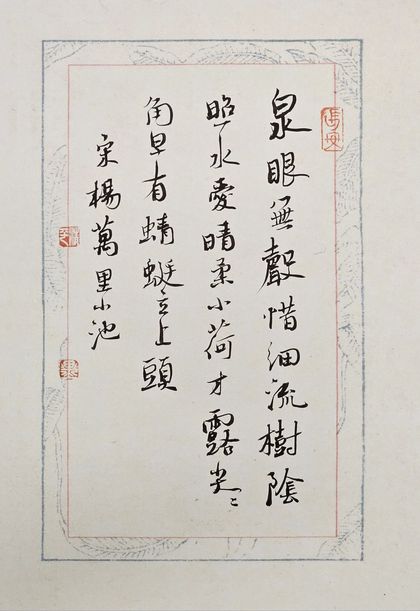 泉眼無聲惜細流樹陰
照水愛晴柔小荷才露尖〻
角早有蜻蜓立上頭
宋楊萬里小池